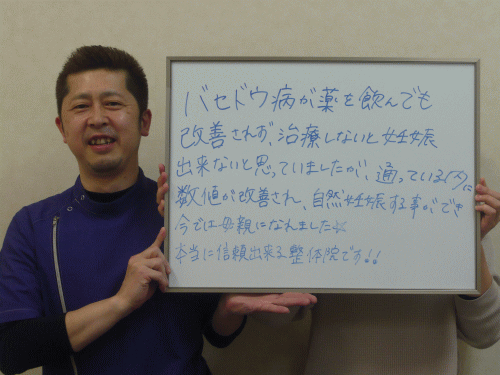 バセドウ病が薬を飲んでも
改善されず、治療しないと妊娠
出来ないと思っていましたが、通っているうちに
数値が改善され、自然妊娠する事ができ
今では母親になれました☆
本当に信頼出来る整体院です!!